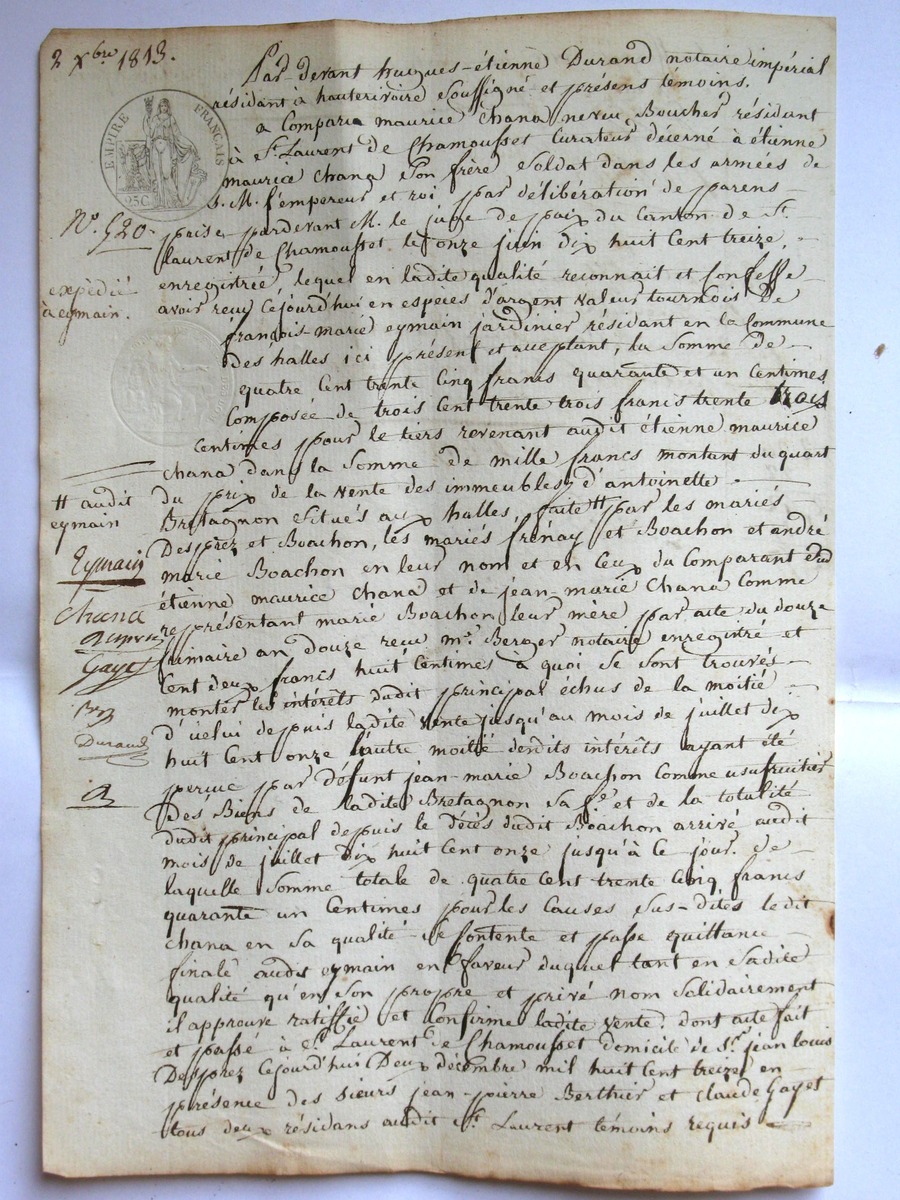 2 Xbre 1813.
Par-devant hugues-étienne Durand notaire impérial
résidant à hauterivoire soussigné et présens témoins.
a Comparu maurice Chana neveu Boucher résidant
à St. Laurent de Chamousset Curateur décerné à étienne
maurice Chana son frère Soldat dans les armées de
S. M. l'empereur et roi par délibération de parens
prise pardevant M. le juge de paix du Canton de St.
laurent de Chamousset le onze juin dix huit Cent treize,
enregistrée, lequel en ladite qualité reconnait et Confesse
avoir reçu Cejourd'hui en espèces d'argent valeur tournois De
françois-marie eymain jardinier résidant en la Commune
des halles ici présent et acceptant, la Somme de
quatre Cent trente Cinq francs quarante et un Centimes
Composée de trois Cent trente trois francs trente trois
Centimes pour le tiers revenant audit étienne maurice
Chana dans la Somme de mille francs montant du quart
du prix de la vente des immeubles d'antoinette
Bretagnon situés aux halles, faite # par les mariés
Desprez et Boachon, les mariés frénay et Boachon et andré
marie Boachon en leur nom et en Ceux du Comparant dud
étienne maurice Chana et de jean-marie Chana Comme
représentant marie Boachon leur mère par acte du douze
frimaire an douze reçu me. Berger notaire enregistré et
Cent deux francs huit Centimes à quoi se sont trouvés
monter les intérêts dudit principal échus de la moitié
d'icelui depuis ladite vente jusqu'au mois de juillet dix
huit Cent onze l'autre moitié desdits intérêts ayant été
perçue par défunt jean-marie Boachon Comme usufruitier
des Biens de ladite Bretagnon sa fe. et de la totalité
dudit principal depuis le décès dudit Boachon arrivé audit
mois de juillet dix huit Cent onze jusqu'à Ce jour. de
laquelle Somme totale de quatre Cent trente Cinq francs
quarante un Centimes pour les Causes sus-dites ledit
Chana en sa qualité se Contente et passe quittance
finale audit eymain en faveur duquel tant en Sadite
qualité qu'en Son propre et privé nom Solidairement
il approuve ratiffie et Confirme ladite vente. dont acte fait
et passé à St. Laurent de Chamousset domicile de Sr. jean louis
Desprez Cejourd'hui Deux décembre mil huit Cent treize en
présence des Sieurs jean-pierre Berthier et Claude Gayet
tous deux résidans audit St. Laurent témoins requis
EMPIRE FRANÇAIS
25C
No. 520
expédié
à eymain.
# audit
eymain
Eymain
Chana
Gayet
Durand